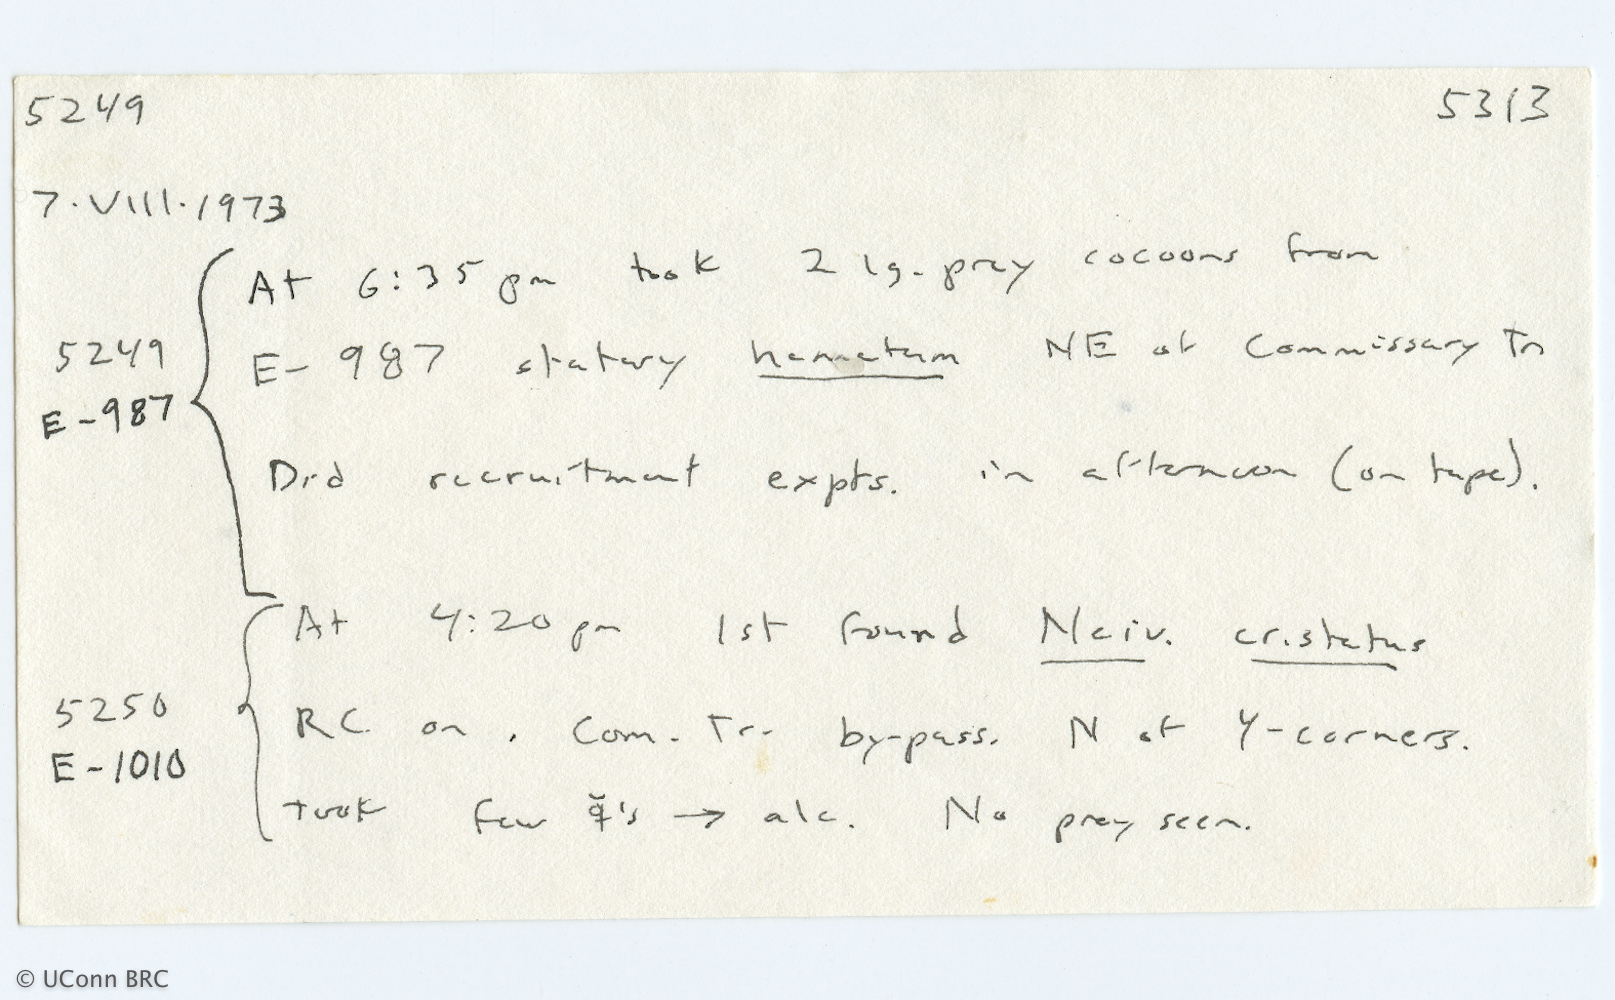 5249 5313
7.VIII.1973
At 6:35 pm took 2 lg. prey cocoons from
5249 E-987 statary hamatum NE of Commissary Tr
E-987
Did recruitment expts. in afternoon (on tape).
At 4:20 pm 1st found Neiv. cristatus
5250 RC on . Com. Tr. by-pass. N of Y-corners.
E-1010
took few 's → alc. No prey seen.
© UConn BRC